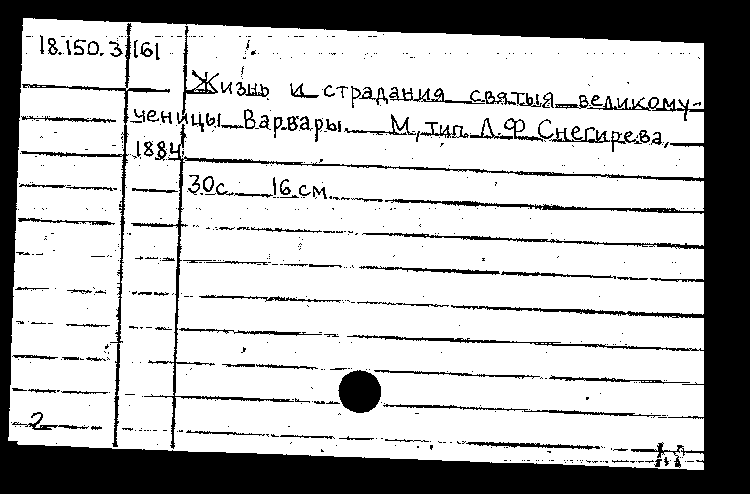 18.150.3.161
Жизнь и страдания святыя великому-
ченицы Варвары. М, тип. Л.Ф Снегирева,
1884
30с 16 см
2